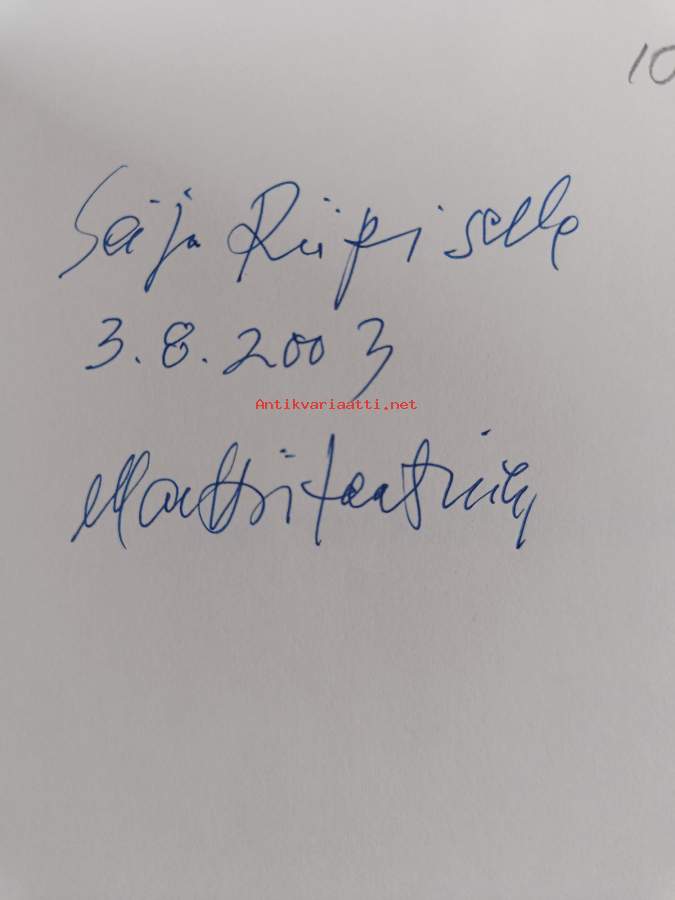 10
Seija Riipiselle
3.8.2003
Antikvariaatti.net
Martti